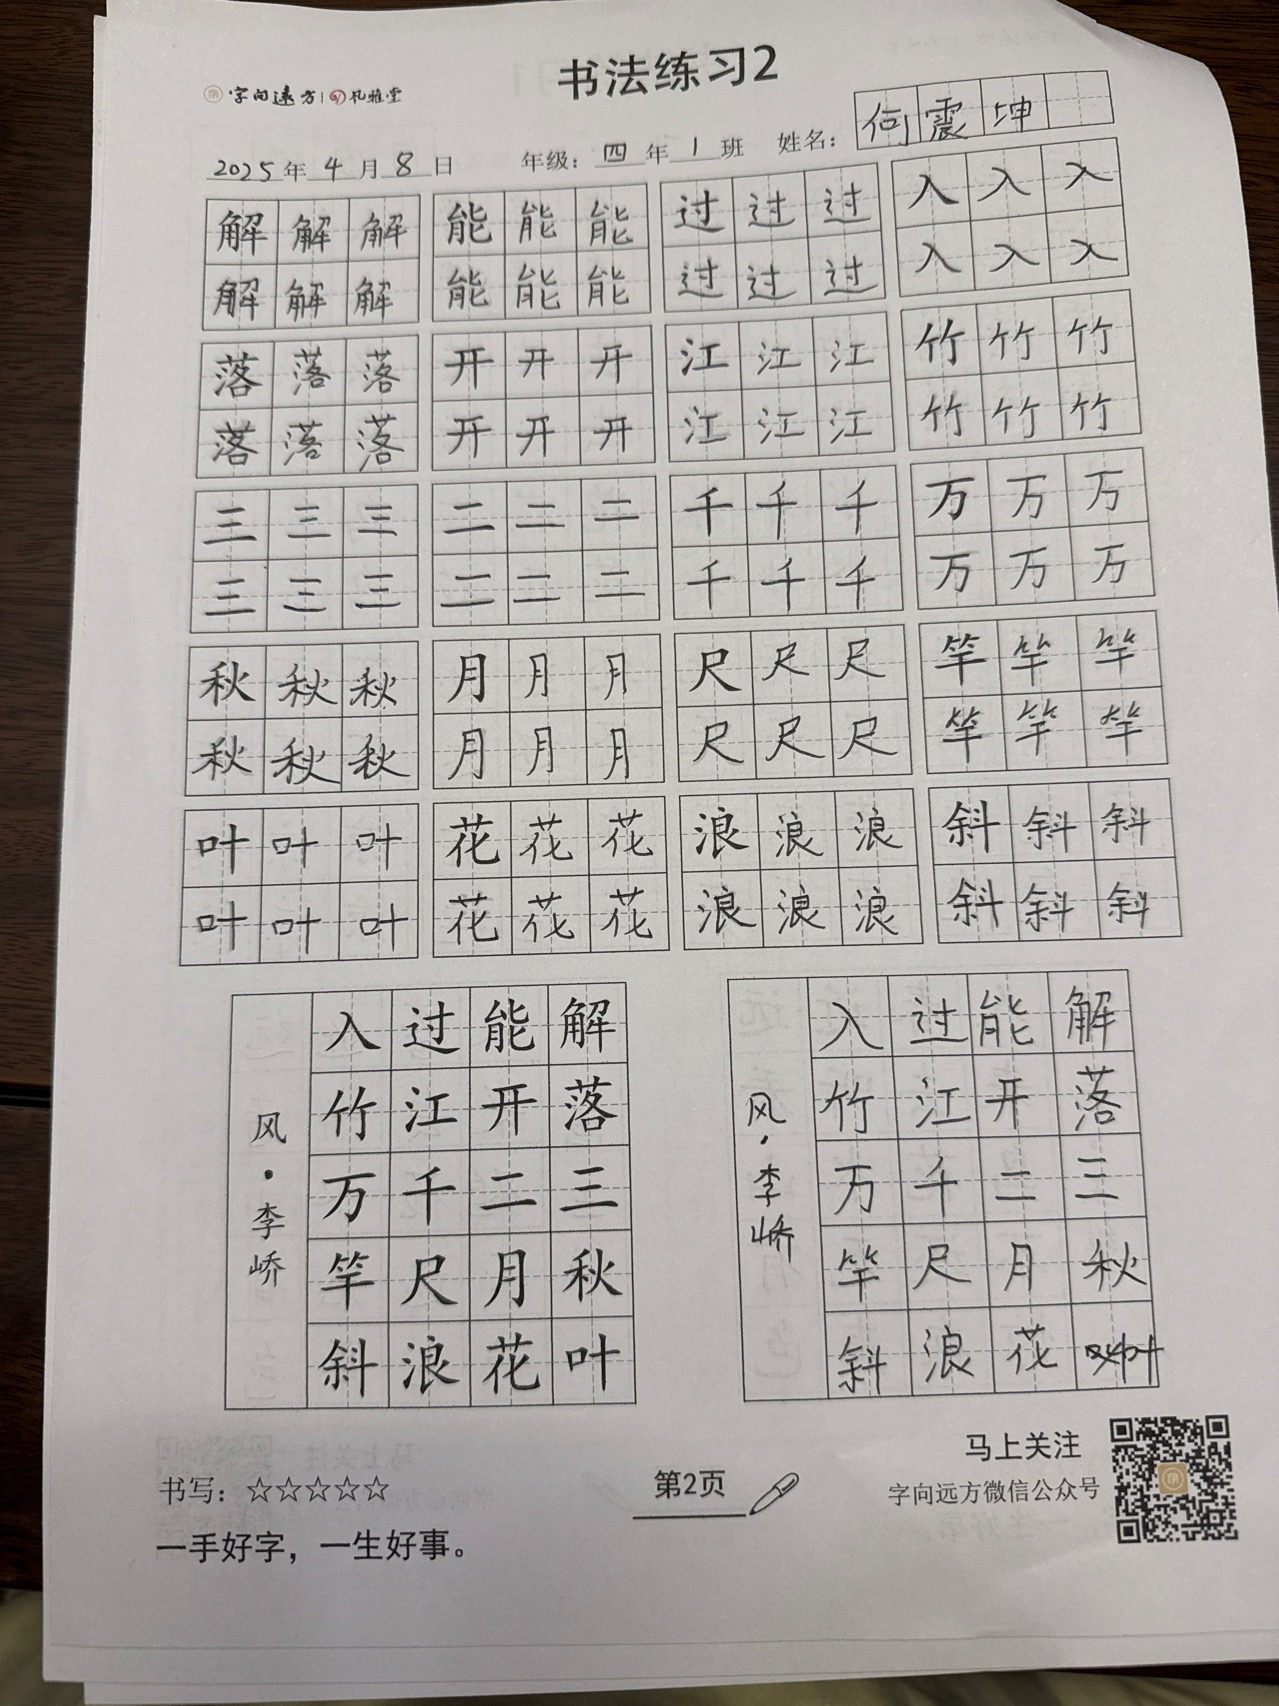 书法练习2
字向远方 礼雅堂
何震坤
2025年4月8日 年级：四年1班 姓名：
解解解 能能能 过过过 入入入
解解解 能能能 过过过 入入入
落落落 开开开 江江江 竹竹竹
落落落 开开开 江江江 竹竹竹
三三三 二二二 千千千 万万万
三三三 二二二 千千千 万万万
秋秋秋 月月月 尺尺尺 竿竿竿
秋秋秋 月月月 尺尺尺 竿竿竿
叶叶叶 花花花 浪浪浪 斜斜斜
叶叶叶 花花花 浪浪浪 斜斜斜
解落三秋叶
能开二月花
过江千尺浪
入竹万竿斜
风·李峤
解落三秋叶
能开二月花
过江千尺浪
入竹万竿斜
风·李峤
书写：☆☆☆☆☆
一手好字，一生好事。
第2页
马上关注
字向远方微信公众号